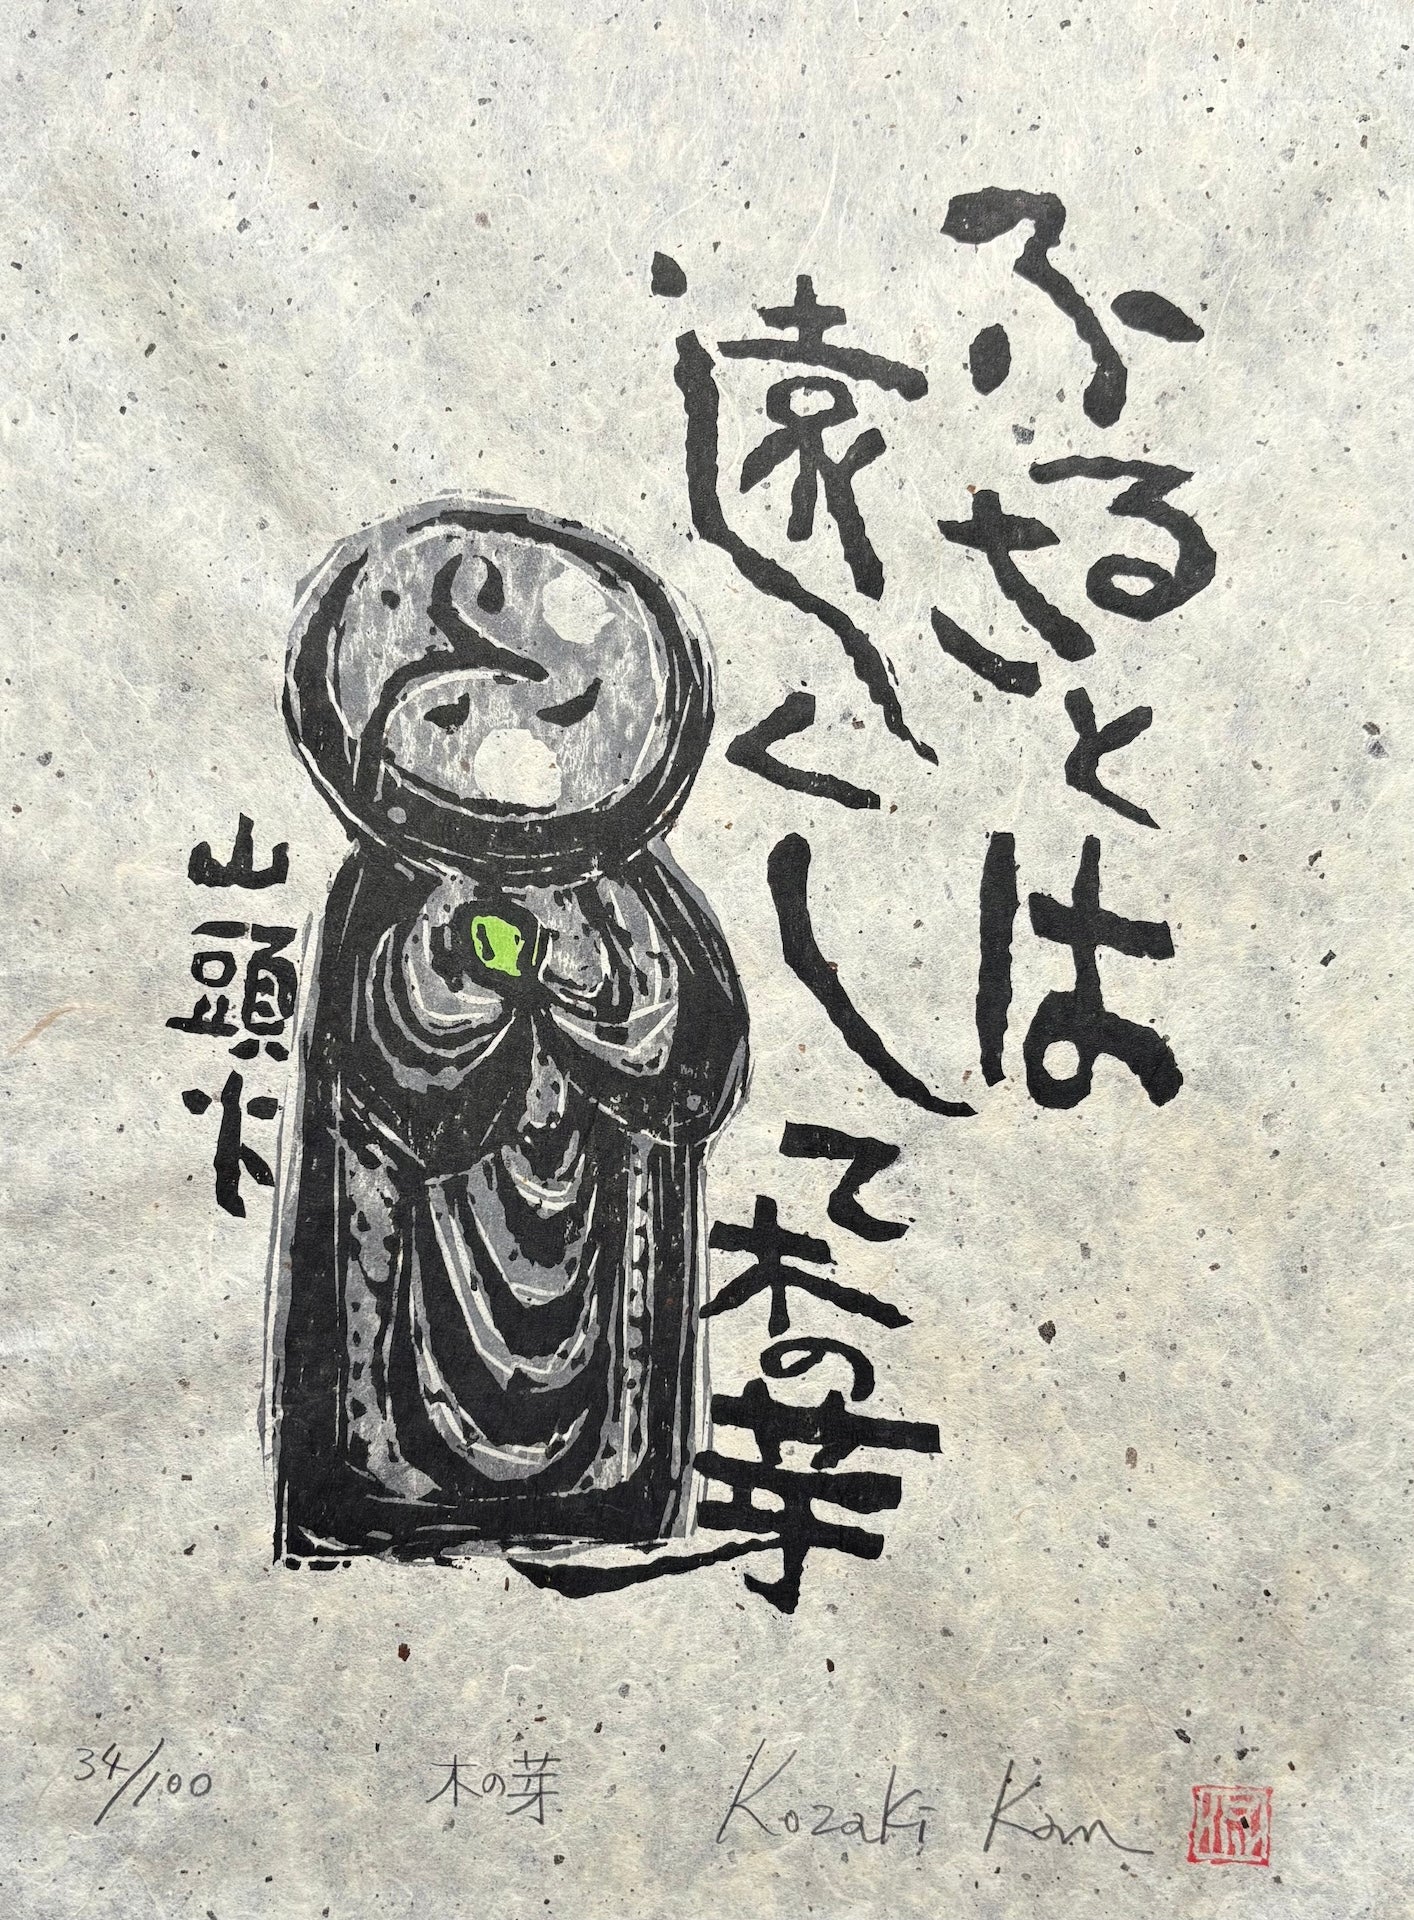 ふるさとは
遠くして木の芽
山頭火
34/100
木の芽
Kozaki Kan